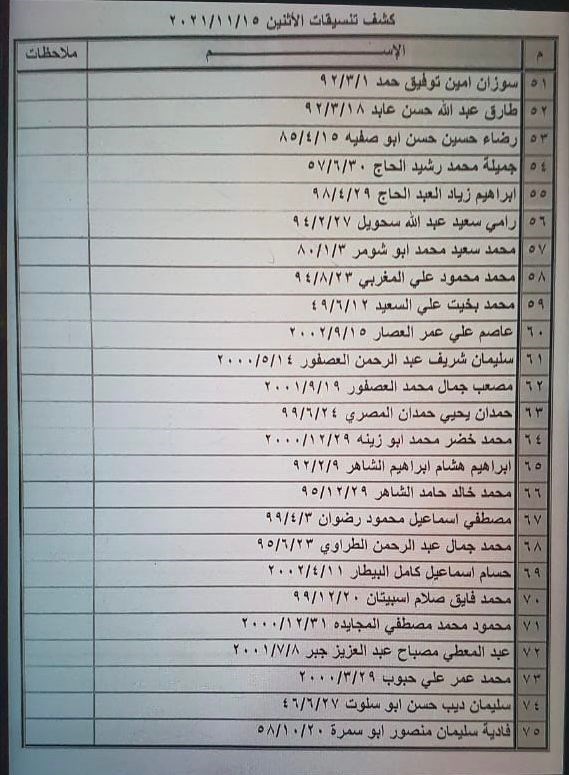 كشف تنسيقات الأثنين ٢٠٢١/١١/١٥
م الإســـــــم ملاحظات
٥١ سوزان امين توفيق حمد ٩٢/٣/١
٥٢ طارق عبد الله حسن عابد ٩٢/٣/١٨
٥٣ رضاء حسين حسن ابو صفيه ٨٥/٤/١٥
٥٤ جميلة محمد رشيد الحاج ٥٧/٦/٣٠
٥٥ ابراهيم زياد العبد الحاج ٩٨/٤/٢٩
٥٦ رامي سعيد عبد الله سحويل ٩٤/٢/٢٧
٥٧ محمد سعيد محمد ابو شومر ٨٠/١/٣
٥٨ محمد محمود علي المغربي ٩٤/٨/٢٣
٥٩ محمد بخيت علي السعيد ٤٩/٦/١٢
٦٠ عاصم علي عمر العصار ٢٠٠٢/٩/١٥
٦١ سليمان شريف عبد الرحمن العصفور ٢٠٠٠/٥/١٤
٦٢ مصعب جمال محمد العصفور ٢٠٠١/٩/١٩
٦٣ حمدان يحيي حمدان المصري ٩٩/٦/٢٤
٦٤ محمد خضر محمد ابو زينه ٢٠٠٠/١٢/٢٩
٦٥ ابراهيم هشام ابراهيم الشاهر ٩٢/٢/٩
٦٦ محمد خالد حامد الشاهر ٩٥/١٢/٢٩
٦٧ مصطفي اسماعيل محمود رضوان ٩٩/٤/٣
٦٨ محمد جمال عبد الرحمن الطراوي ٩٥/٦/٢٣
٦٩ حسام اسماعيل كامل البيطار ٢٠٠٢/٤/١١
٧٠ محمد فايق صلام اسبيتان ٩٩/١٢/٢٠
٧١ محمود محمد مصطفي المجايده ٢٠٠٠/١٢/٣١
٧٢ عبد المعطي مصباح عبد العزيز جبر ٢٠٠١/٧/٨
٧٣ محمد عمر علي حبوب ٢٠٠٠/٣/٢٩
٧٤ سليمان ديب حسن ابو سلوت ٤٦/٦/٢٧
٧٥ فادية سليمان منصور ابو سمرة ٥٨/١٠/٢٠